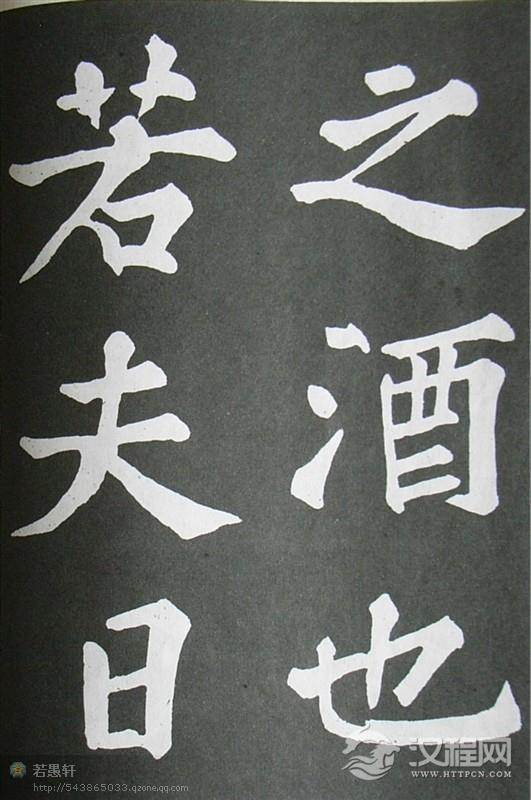 之酒也
若夫日
若愚轩
http://543865033.qzone.qq.com
汉程网
WWW.HTTPCN.COM